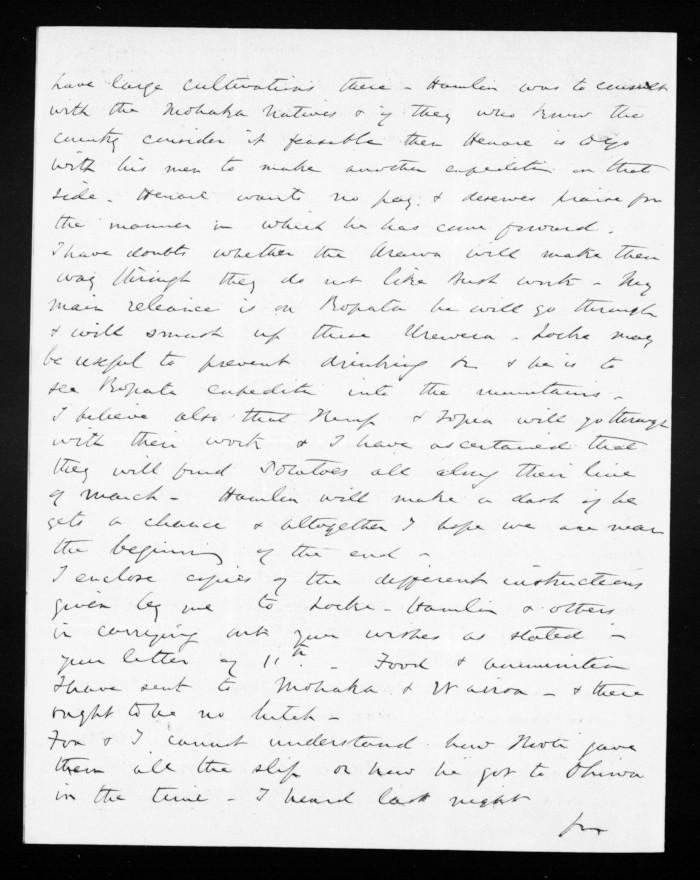 have large cultivations there - Hamlin was to consult
with the Mohaka Natives & if they who knew the
country consider it feasible then Henare is to go
with his men to make another expedition on that
side. Henare wants no pay & deserves praise for
the manner in which he has come forward.
I have doubts whether the Arawa will make their
way through they do not like Bush work - My
main releance is on Ropata he will go through
& will smash up these Urewera - Locke may
be useful to prevent drinking & he is to
see Ropata expedite into the mountains -
I believe also that Kemp & Topia will go through
with their work & I have ascertained that
they will find Potatoes all along their line
of march - Hamlin will make a dash if he
gets a chance & altogether I hope we are near
the beginning of the end -
I enclose copies of the different instructions
given by me to Locke - Hamlin & others
in carrying out your wishes as stated in
your letter of 11th. - Food & ammunition
I have sent to Mohaka & Wairoa - & there
ought to be no hitch -
Fox & I cannot understand how Kooti gave
them all the slip or how he got to Ohiwa
in the time - I heard last night
from